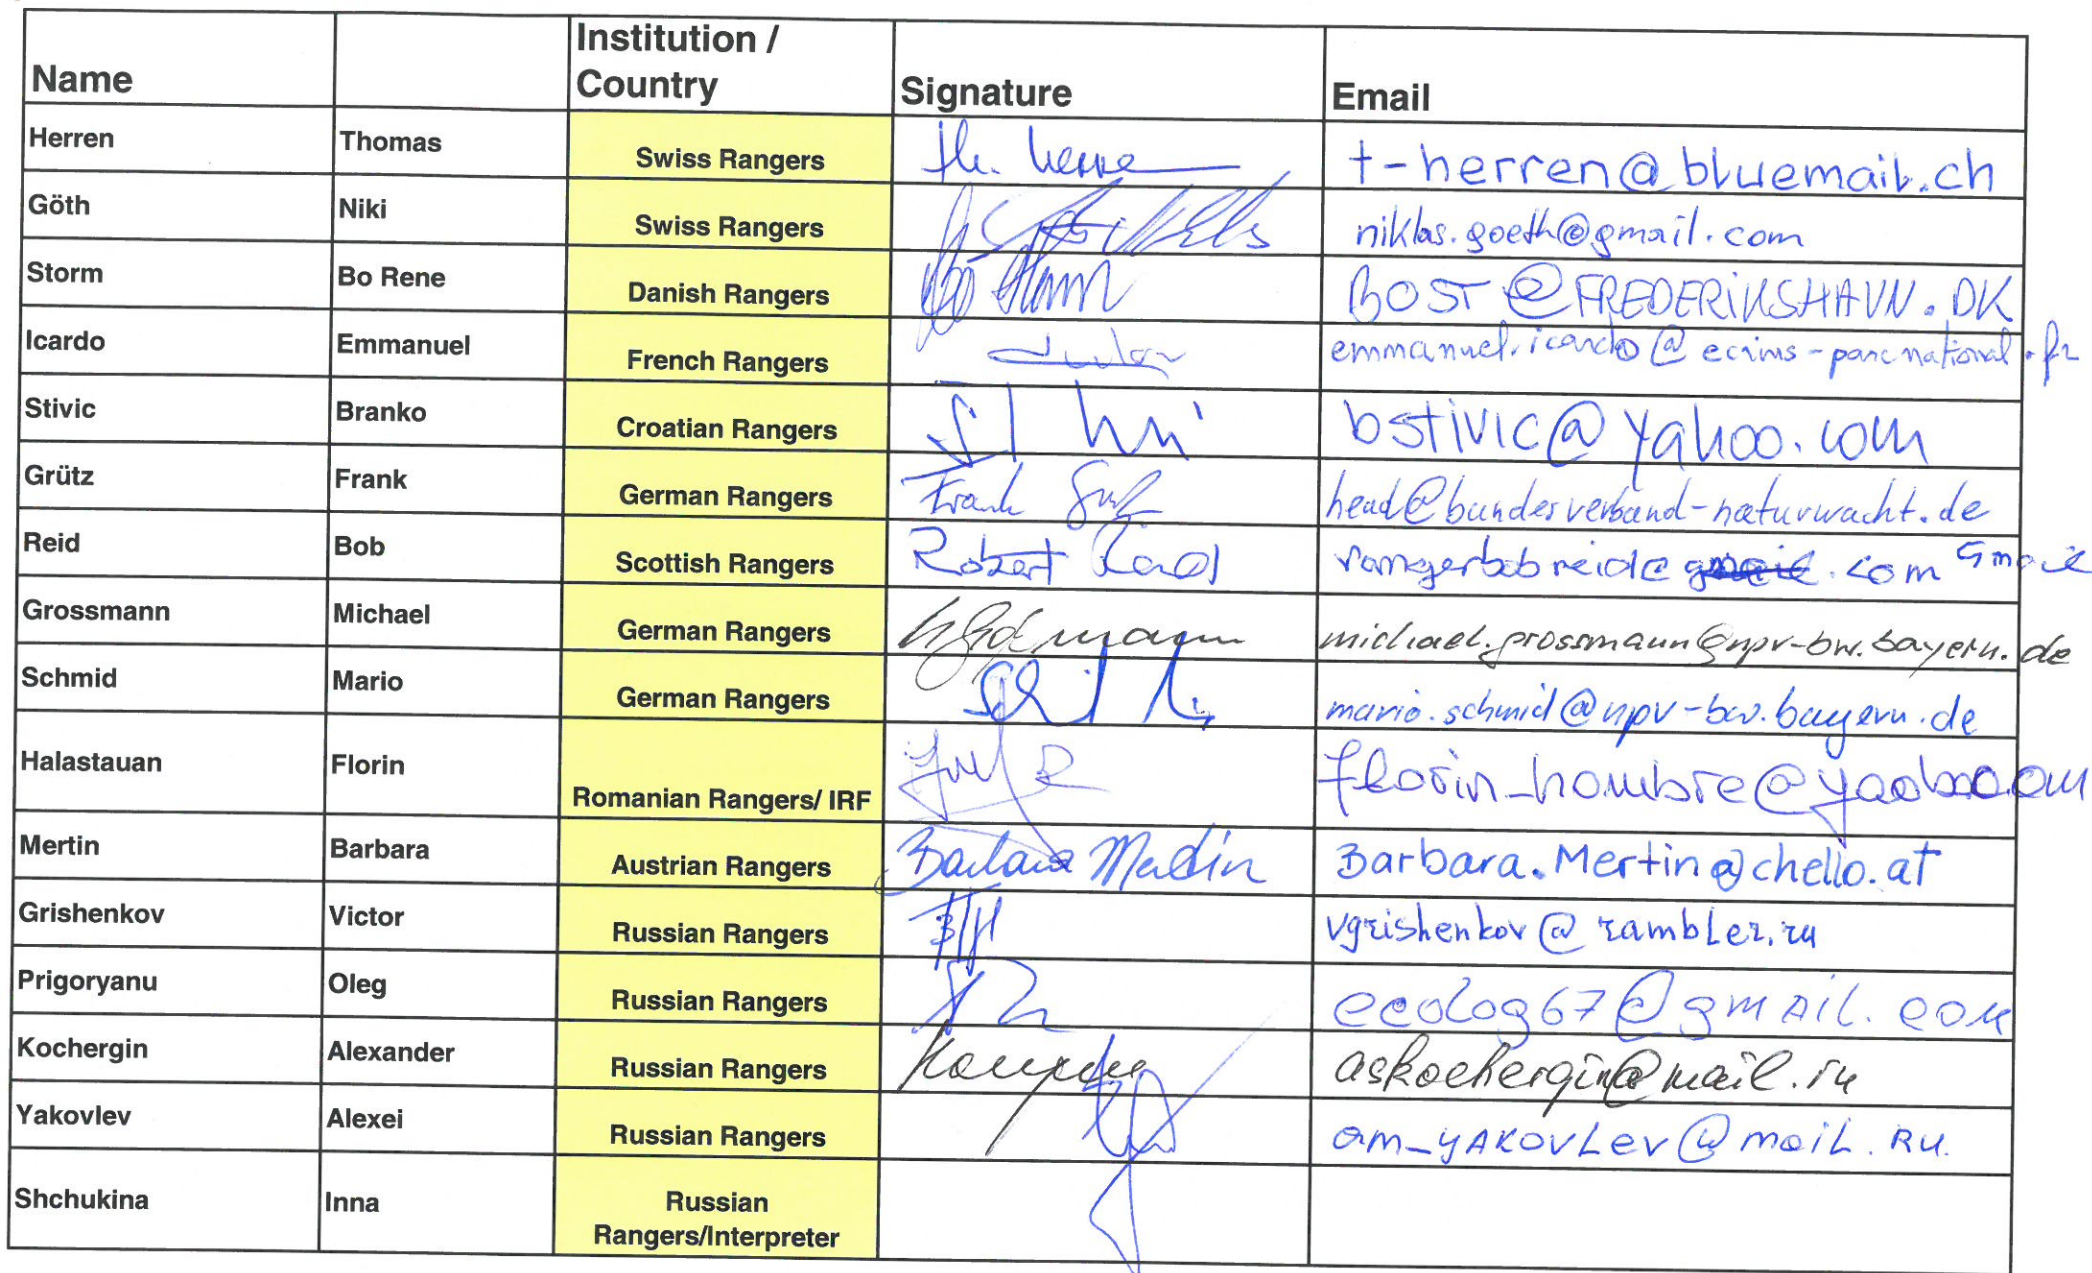 Name Institution / Country Signature Email
Herren Thomas Swiss Rangers Th. Herren t-herren@bluemail.ch
Göth Niki Swiss Rangers niklas.goeth@gmail.com
Storm Bo Rene Danish Rangers Bo Storm BOST@FREDERIKSHAVN.DK
Icardo Emmanuel French Rangers emmanuel.icardo@ecrins-parcnational.fr
Stivic Branko Croatian Rangers bstivic@yahoo.com
Grütz Frank German Rangers Frank head@bundesverband-naturwacht.de
Reid Bob Scottish Rangers Robert Reid rangerbobreid@gmail.com Gmail
Grossmann Michael German Rangers michael.grossmann@npv-bw.bayern.de
Schmid Mario German Rangers mario.schmid@npv-bw.bayern.de
Halastauan Florin Romanian Rangers/ IRF
Mertin Barbara Austrian Rangers Barbara Mertin Barbara.Mertin@chello.at
Grishenkov Victor Russian Rangers vgrishenkov@rambler.ru
Prigoryanu Oleg Russian Rangers ecolog67@gmail.com
Kochergin Alexander Russian Rangers askochergin@mail.ru
Yakovlev Alexei Russian Rangers am_yakovlev@mail.ru
Shchukina Inna Russian Rangers/Interpreter